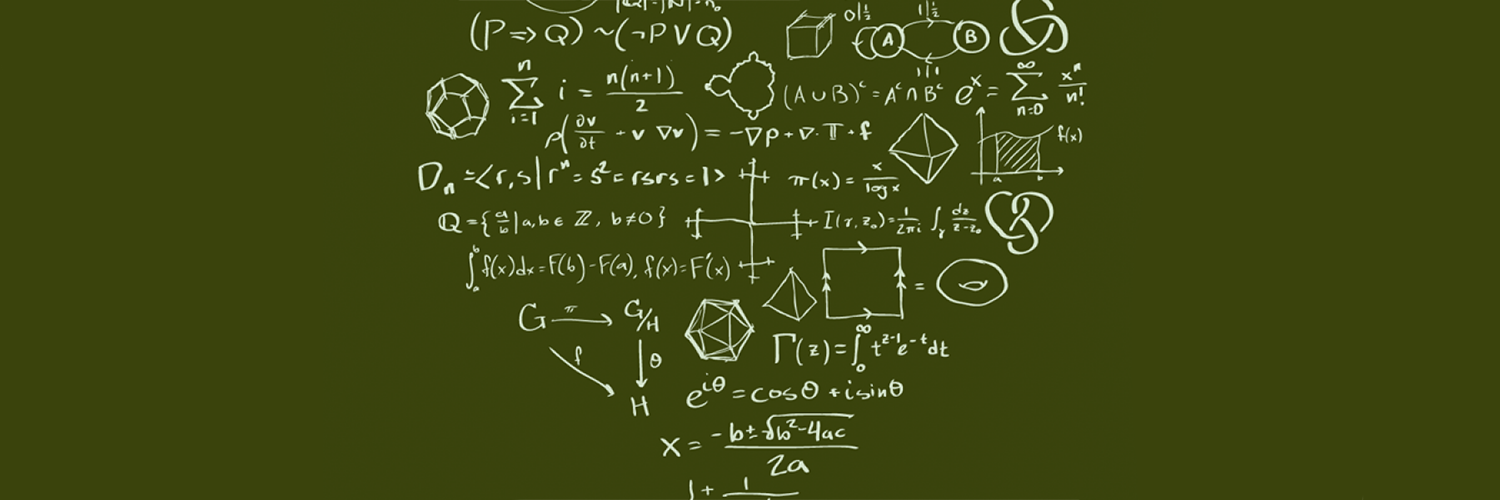 |Q|=|N|=ℵ₀
(P => Q) ~ (¬P ∨ Q)
0|½ 1|½
A B
1|1
∑_{i=1}^{n} i = n(n+1)/2
(A ∪ B)ᶜ = Aᶜ ∩ Bᶜ
eˣ = ∑_{n=0}^{∞} xⁿ/n!
ρ(∂v/∂t + v ∇v) = -∇p + ∇· T + f
f(x)
a b
Dₙ = <r, s | rⁿ = s² = rsrs = 1>
π(x) = x/log x
Q = {a/b | a, b ∈ ℤ, b ≠ 0}
I(γ, z₀) = 1/2πi ∫_γ dz/z-z₀
∫_a^b f(x)dx = F(b) - F(a), f(x) = F'(x)
=
G π G/H
f θ
H
Γ(z) = ∫_0^∞ t^{z-1} e^{-t} dt
e^{iθ} = cosθ + i sinθ
x = -b ± √b²-4ac / 2a
1 + 1